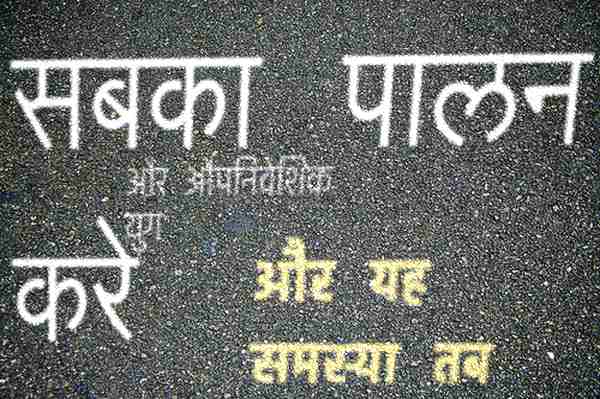 सबका पालन
और औपनिवेशिक
युग
करें
और यह
समस्या तब